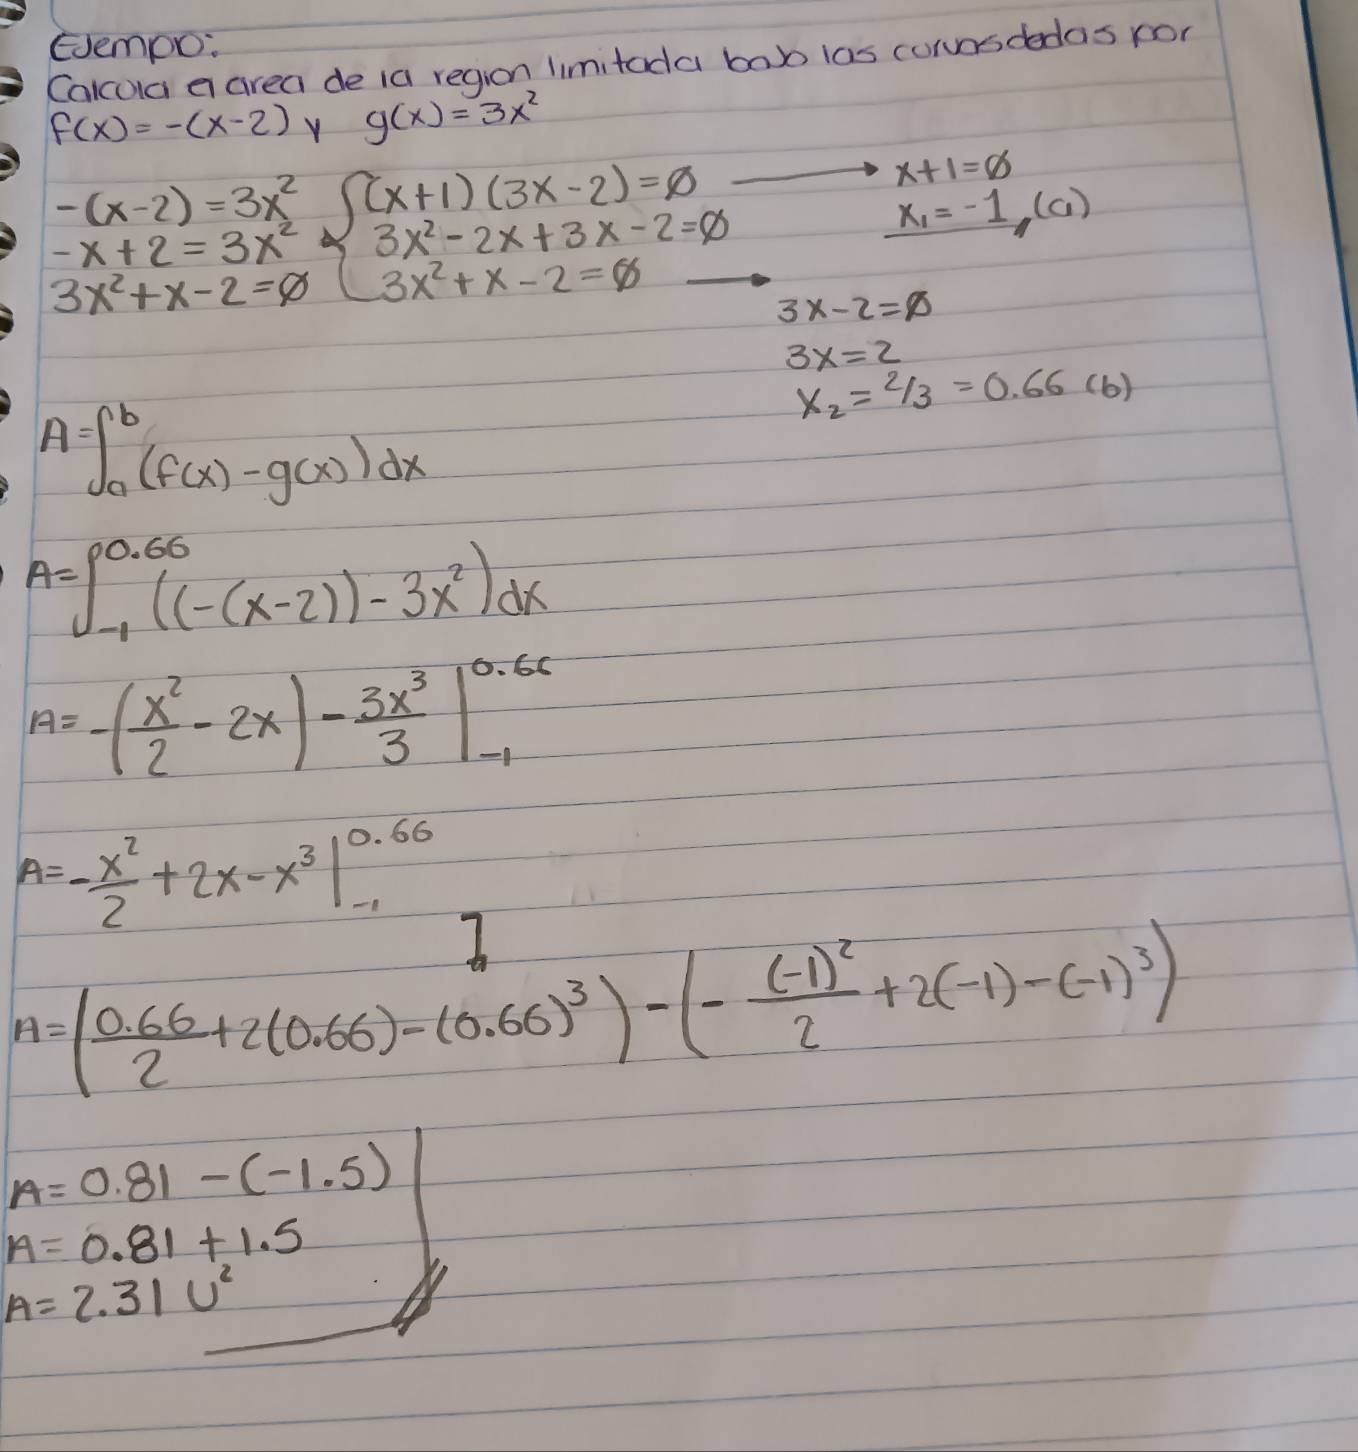 EJempo:
Calcula el area de la region limitada bajo las curvas dadas por
f(x) = -(x-2) y g(x) = 3x²
-(x-2) = 3x² { (x+1)(3x-2) = 0 → x+1 = 0
-x+2 = 3x² 3x²-2x+3x-2 = 0 x₁ = -1, (a)
3x²+x-2 = 0 3x²+x-2 = 0 →
3x-2 = 0
3x = 2
x₂ = 2/3 = 0.66 (b)
A = ∫ₐᵇ (f(x) - g(x)) dx
A = ∫₋₁^0.66 ((-(x-2)) - 3x²) dx
A = -(x²/2 - 2x) - 3x³/3 |₋₁^0.66
A = -x²/2 + 2x - x³ |₋₁^0.66
A = (0.66/2 + 2(0.66) - (0.66)³) - (-(-1)²/2 + 2(-1) - (-1)³)
A = 0.81 - (-1.5)
A = 0.81 + 1.5
A = 2.31 U²